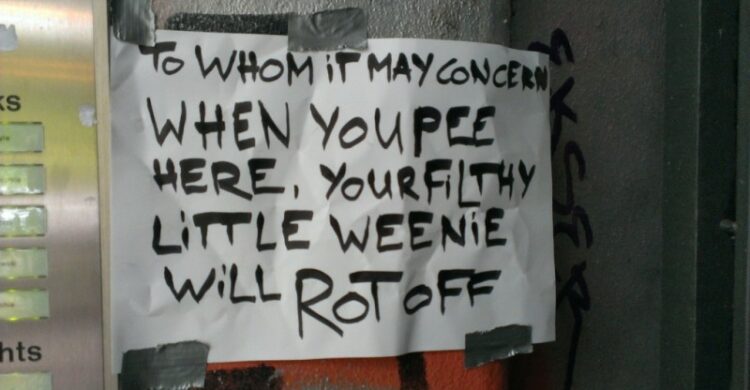 TO WHOM iT MAY CONCERN
WHEN YOU PEE
HERE, YOUR FiLTHY
LiTTLE WEENiE
WiLL ROT OFF
ks
hts